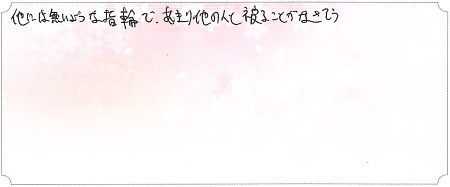 他には無いような指輪で、あまり他の人と被ることがなさそう